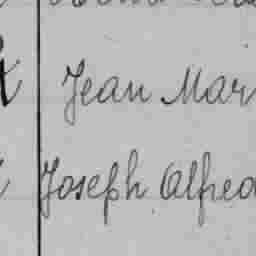 Jean Mar
Joseph Alfred